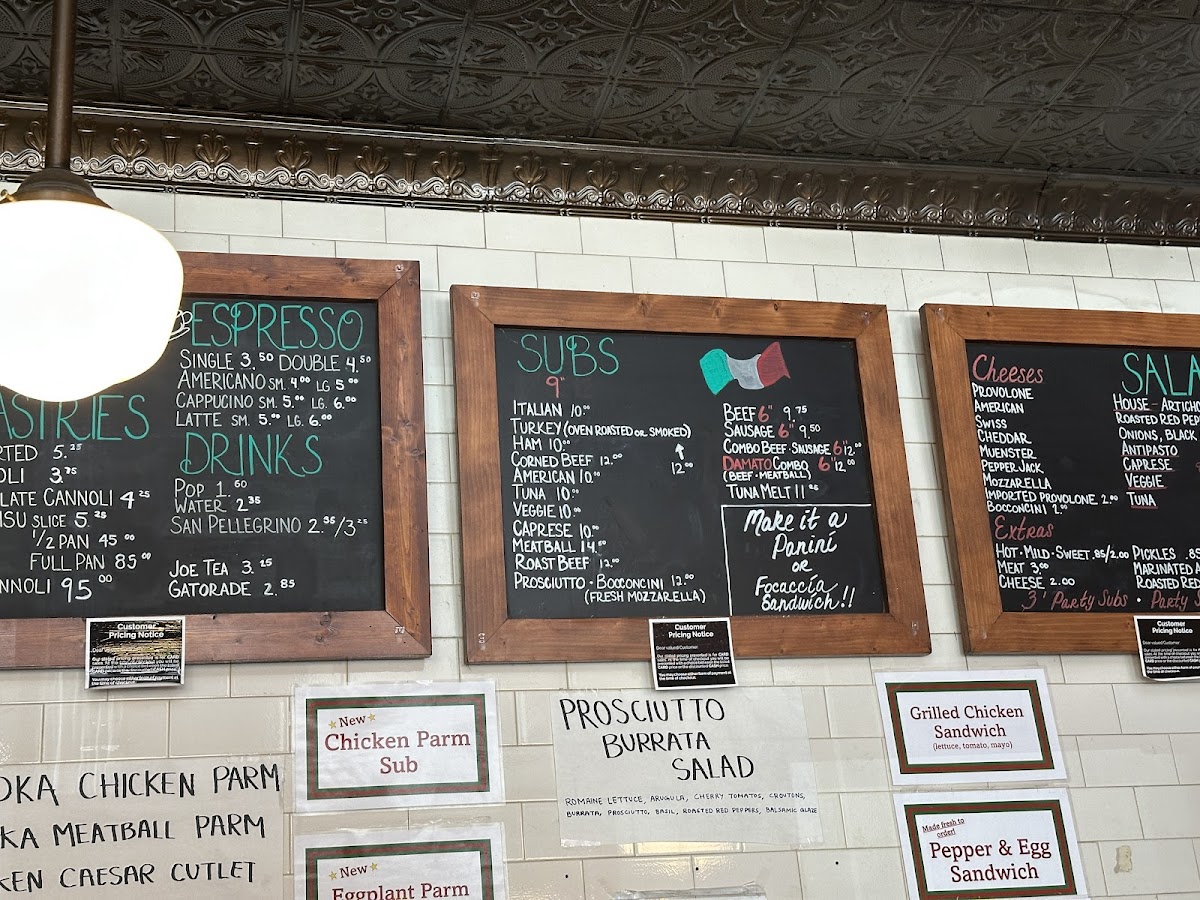 ESPRESSO
SINGLE 3.50 DOUBLE 4.50
AMERICANO SM. 4.00 LG 5.00
CAPPUCINO SM. 5.00 LG. 6.00
LATTE SM. 5.00 LG. 6.00
ASTRIES
5.25
OLI 3.75
LATE CANNOLI 4.25
SU SLICE 5.25
1/2 PAN 45.00
FULL PAN 85.00
NNOLI 95.00
DRINKS
POP 1.60
WATER 2.35
SAN PELLEGRINO 2.35/3.25
JOE TEA 3.25
GATORADE 2.85
SUBS
9"
ITALIAN 10.00
TURKEY (OVEN ROASTED OR SMOKED)
12.00
HAM 10.00
CORNED BEEF 12.00
AMERICAN 10.00
TUNA 10.00
VEGGIE 10.00
CAPRESE 10.00
MEATBALL 14.50
ROAST BEEF 12.00
PROSCIUTTO · BOCCONCINI 12.00
(FRESH MOZZARELLA)
BEEF 6" 9.75
SAUSAGE 6" 9.50
COMBO BEEF·SAUSAGE 6" 12.00
DAMATO COMBO 6" 12.00
(BEEF·MEATBALL)
TUNA MELT 11
Make it a
Panini
OR
Focaccia
Sandwich!!
Cheeses
PROVOLONE
AMERICAN
SWISS
CHEDDAR
MUENSTER
PEPPER JACK
MOZZARELLA
IMPORTED PROVOLONE 2.00
BOCCONCINI
Extras
HOT·MILD·SWEET .85/2.00
MEAT 3.00
CHEESE 2.00
3' Party Subs · Party S
SALA
HOUSE - ARTICHO
ROASTED RED PEP
ONIONS, BLACK
ANTIPASTO
CAPRESE
VEGGIE
TUNA
PICKLES .85
MARINATED A
ROASTED RED
Customer
Pricing Notice
Customer
Pricing Notice
Customer
Pricing Notice
OKA CHICKEN PARM
KA MEATBALL PARM
KEN CAESAR CUTLET
New
Chicken Parm
Sub
New
Eggplant Parm
PROSCIUTTO
BURRATA
SALAD
ROMAINE LETTUCE, ARUGULA, CHERRY TOMATOS, CROUTONS,
BURRATA, PROSCIUTTO, BASIL, ROASTED RED PEPPERS, BALSAMIC GLAZE
Grilled Chicken
Sandwich
(lettuce, tomato, mayo)
Made fresh to
order!
Pepper & Egg
Sandwich